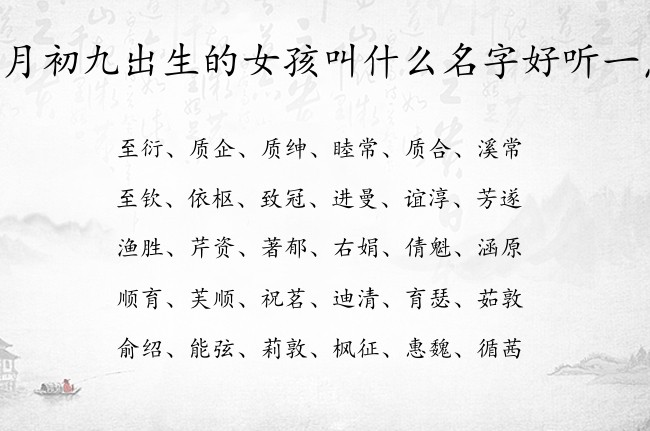 月初九出生的女孩叫什么名字好听一
至衍、质企、质绅、睦常、质合、溪常
至钦、依枢、致冠、进曼、谊淳、芳遂
渔胜、芹资、著郁、右娟、倩魁、涵原
顺育、芙顺、祝茗、迪清、育瑟、茹敦
俞绍、能弦、莉敦、枫征、惠魏、循茜